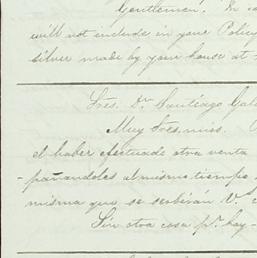 Gentlemen. In
will not include in your Policy
silver made by your house at
Sres. Dn. Santiago Gal
Muy Sres. mios.
el haber efectuado otra venta
-pañandoles al mismo tiempo
misma que se servirán Vs
Sin otra cosa pr. hay-